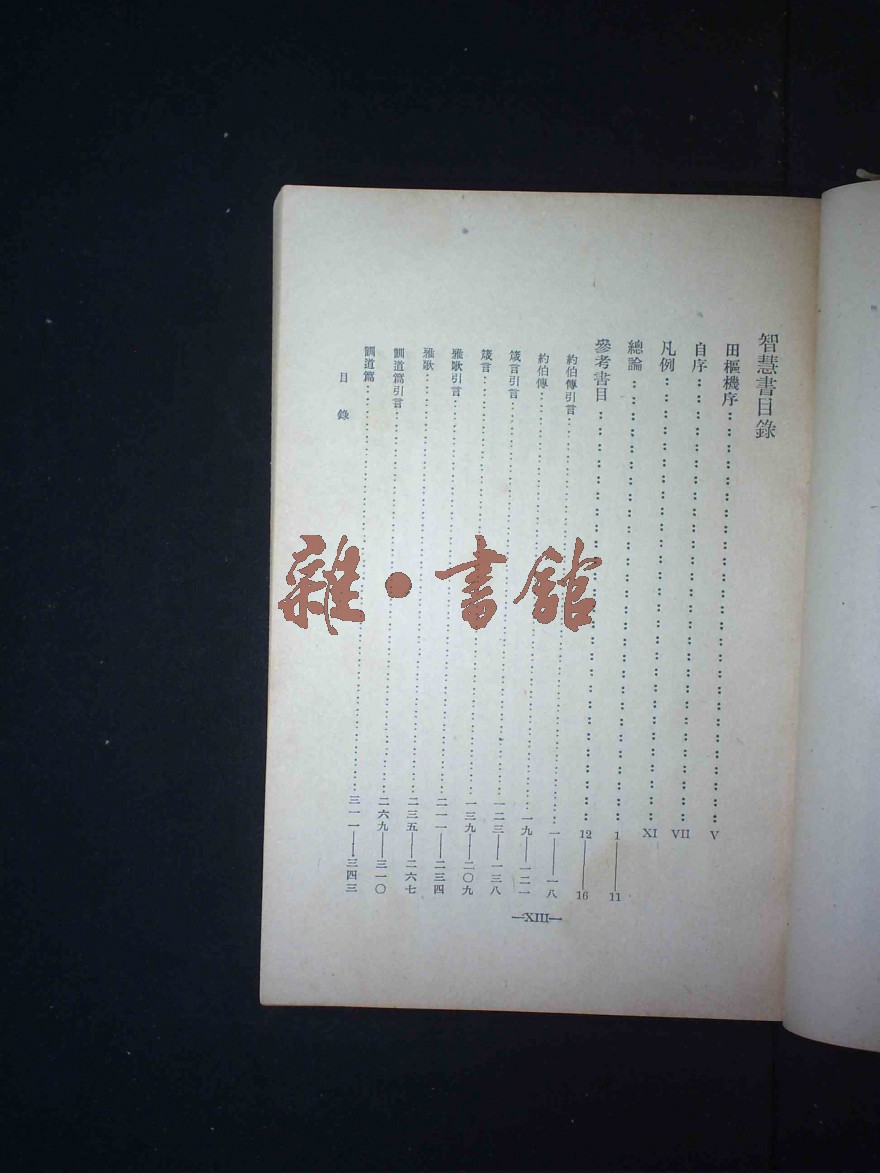 智慧書目錄
田樞機序 V
自序 VII
凡例 XI
總論 1——11
參考書目 12——16
約伯傳引言 一——一八
約伯傳 一九——一二一
箴言引言 一二三——一三八
箴言 一三九——二〇九
雅歌引言 二一一——二三四
雅歌 二三五——二六七
訓道篇引言 二六九——三一〇
訓道篇 三一一——三四三
目錄
—XIII—
雜·書館